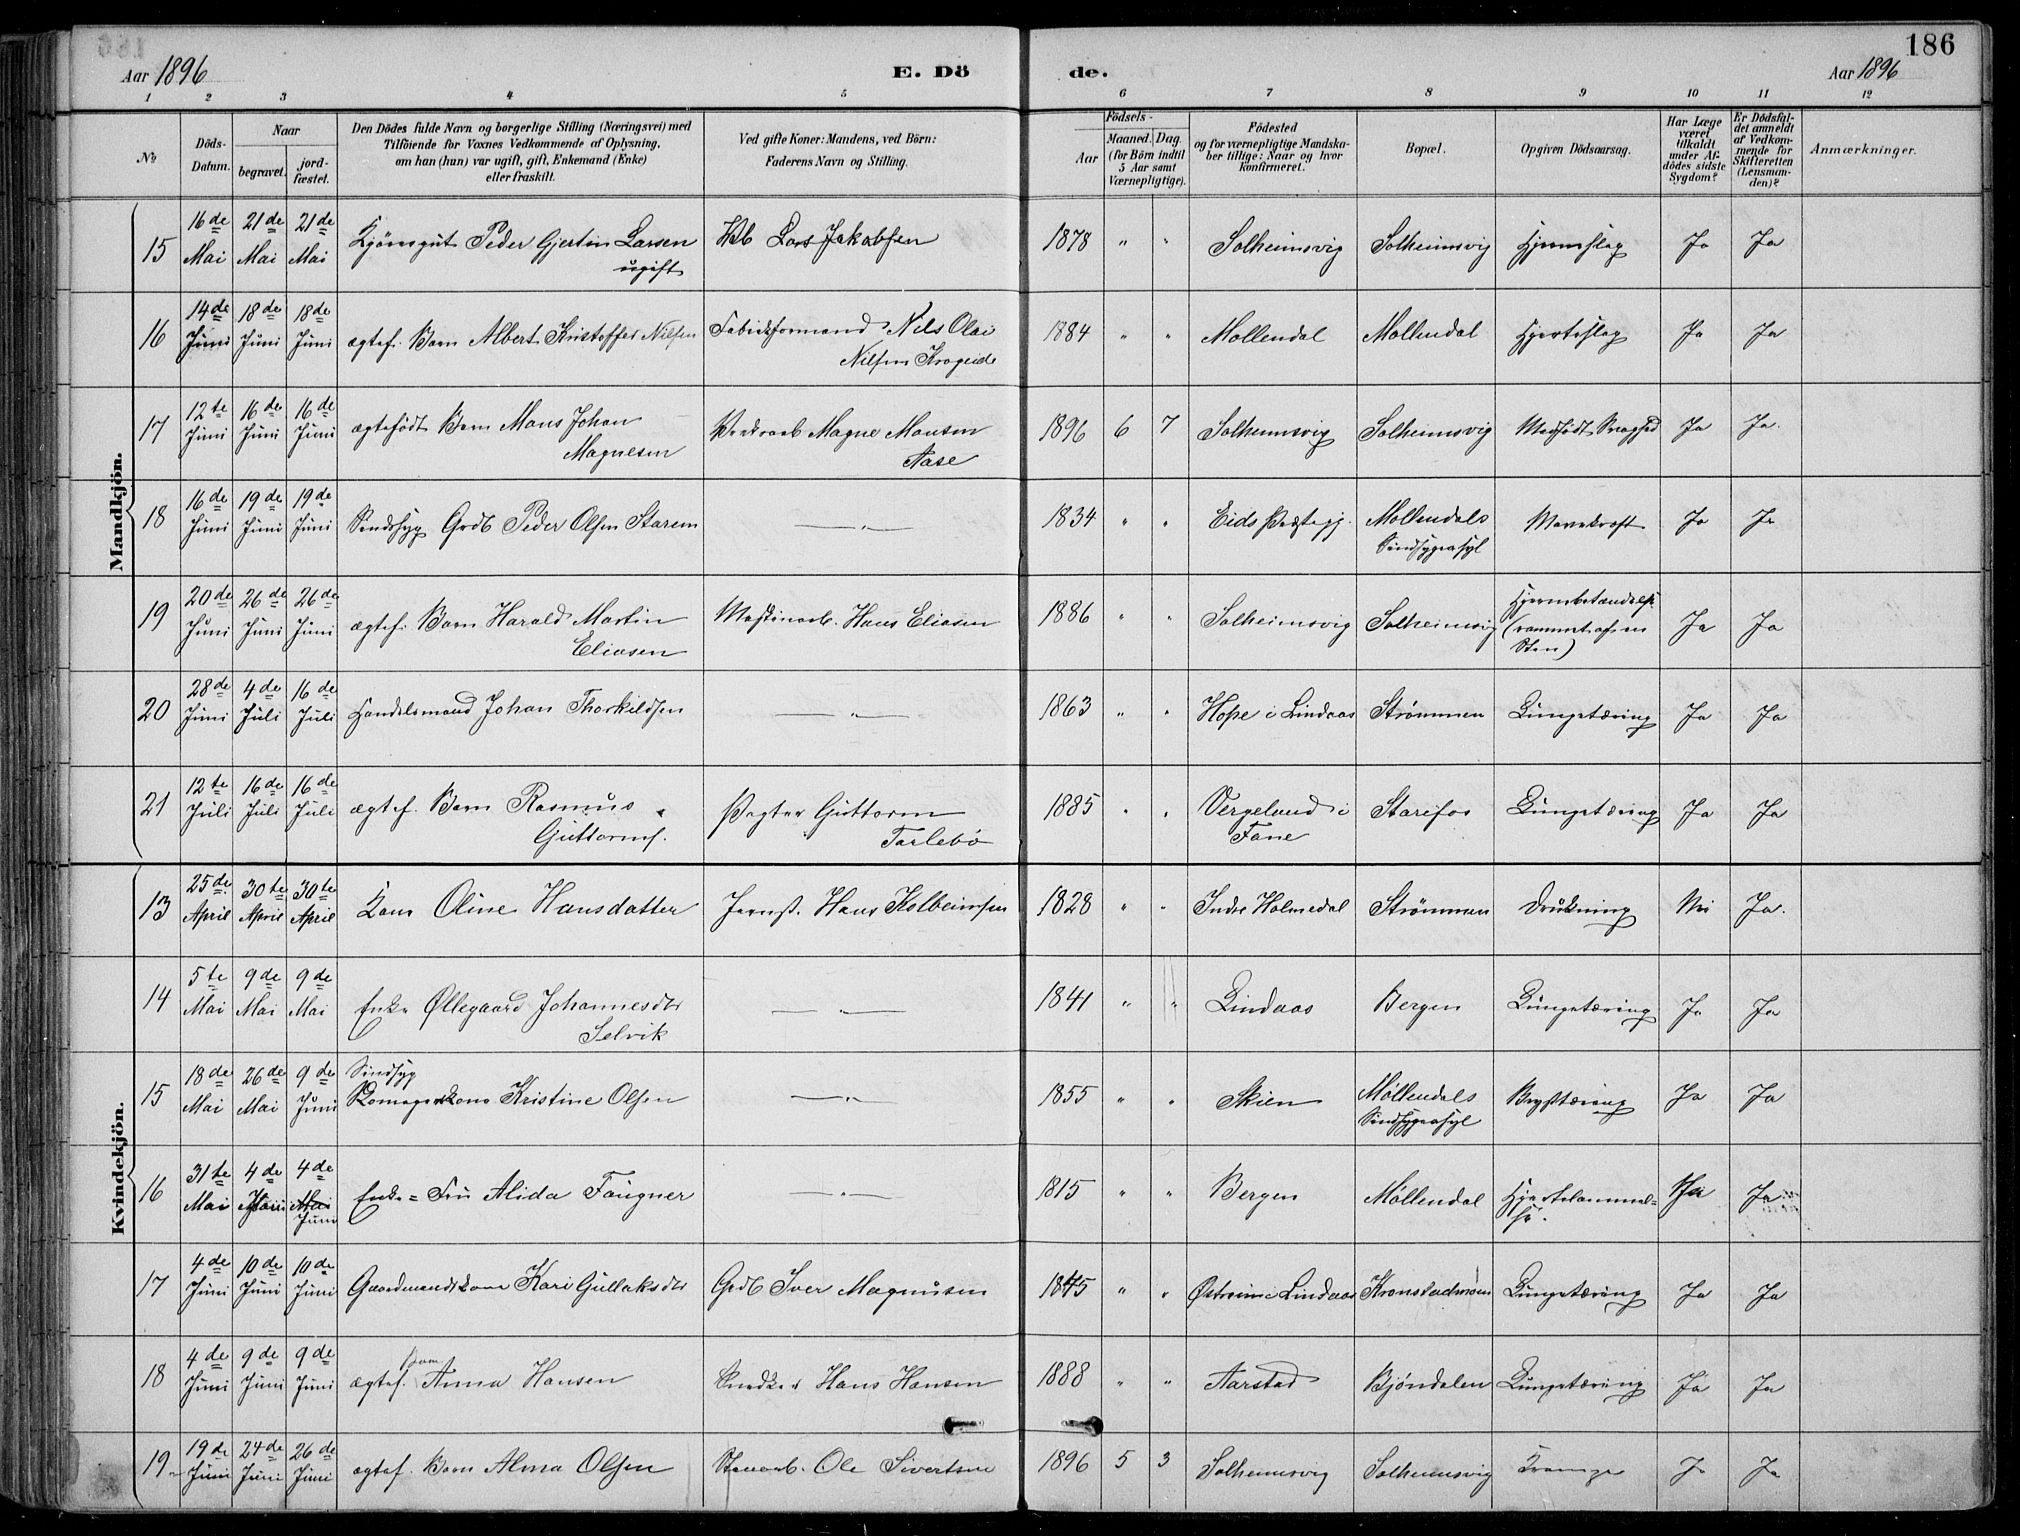 186
Aar 1896 E. Dö de. Aar 1896
1 2 3 4 5 6 6 7 8 9 10 11 12
No
Döds-Datum.
Naar
begravet.
jord-fæstet.
Den Dödes fulde Navn og borgerlige Stilling (Næringsvei) med
Tilföiende for Voxnes Vedkommende af Oplysning,
om han (hun) var ugift, gift, Enkemand (Enke)
eller fraskilt.
Ved gifte Koner: Mandens, ved Börn:
Faderens Navn og Stilling.
Födsels-
Aar
Maaned. Dag.
(for Börn indtil
5 Aar samt
Værnepligtige).
Födested
og for værnepligtige Mandska-
ber tillige: Naar og hvor
konfirmeret.
Bopæl.
Opgiven Dödsaarsag.
Har Læge
været
tilkaldt
under Af-
dödes sidste
Sygdom?
Er Dödsfal-
det anmeldt
af Vedkom-
mende for
Skifteretten
(Lensman-
den)?
Anmærkninger.
Mandkjön.
15 16de Mai 21de Mai 21de Mai Peder Gjertin Larsen Lars Jakobsen 1878 " " Solheimsvig Solheimsvig Hjerneslag Ja Ja
ugift
16 14de Juni 18de Juni 18de Juni ægtef. Barn Albert Kristoffer Nilsen Fabrikformand Nils Olai 1884 " " Møllendal Møllendal Hjerteslag Ja Ja
Nilsen Krogeide
17 12te Juni 16de Juni 16de Juni ægtefødt Barn Mons Johan Magne Monsen 1896 6 7 Solheimsvig Solheimsvig Medfødt Svaghed Ja Ja.
Magnesen Aase
18 16de Juni 19de Juni 19de Juni Sindssyg Grdb Peder Olsen Starem —"— 1834 " " Eids Præstegj. Møllendals Mavekræft Ja Ja
Sindsygeasyl
19 20de Juni 26de Juni 26de Juni ægtef. Barn Harald Martin Maskinarb. Hans Eliasen 1886 " " Solheimsvig Solheimsvig Hjernebetændelse Ja Ja
Eliasen (rammet af en
Sten)
20 28de Juni 4de Juli 16de Juli Handelsmand Johan Thorkildsen —"— 1863 " " Hope i Lindaas Strømmen Lungetæring Ja Ja
21 12te Juli 16de Juli 16de Juli ægtef. Barn Rasmus Guttorm 1885 " " Vergeland i Starefos Lungetæring Ja Ja
Guttorms. Tarlebø Fane
Kvindekjön.
13 25de April 30te April 30te April Kone Oline Hansdatter Hans Kolbeinsen 1828 " " Indre Holmedal Strømmen Drukning Nei Ja.
14 5te Mai 9de Mai 9de Mai Enke Øllegaard Johannesdtr —"— 1841 " " Lindaas Bergen Lungetæring Ja Ja
Selvik
15 18de Mai 26de Mai 9de Juni Sindssyg —"— 1855 " " Skien Møllendals Brysttæring Ja Ja
Kristine Olsen Sindsygeasyl
16 31te Mai 4de Juni 4de Mai Enke-Fru Alida Faugner —"— 1815 " " Bergen Møllendal Hjertelammel- Ja Ja
Juni se.
17 4de Juni 10de Juni 10de Juni Gaardmandskone Kari Gullaksdtr Grdb Iver Magnusen 1845 " " Østreim i Lindaas Kronstadmoen Lungetæring Ja Ja
18 4de Juni 9de Juni 9de Juni ægtef. Barn Anna Hansen Snedker Hans Hansen 1888 " " Aarstad Bjøndalen Lungetæring Ja Ja
19 19de Juni 24de Juni 26de Juni ægtef. Barn Alma Olsen Ole Sivertsen 1896 5 3 Solheimsvig Solheimsvig Krampe Ja Ja